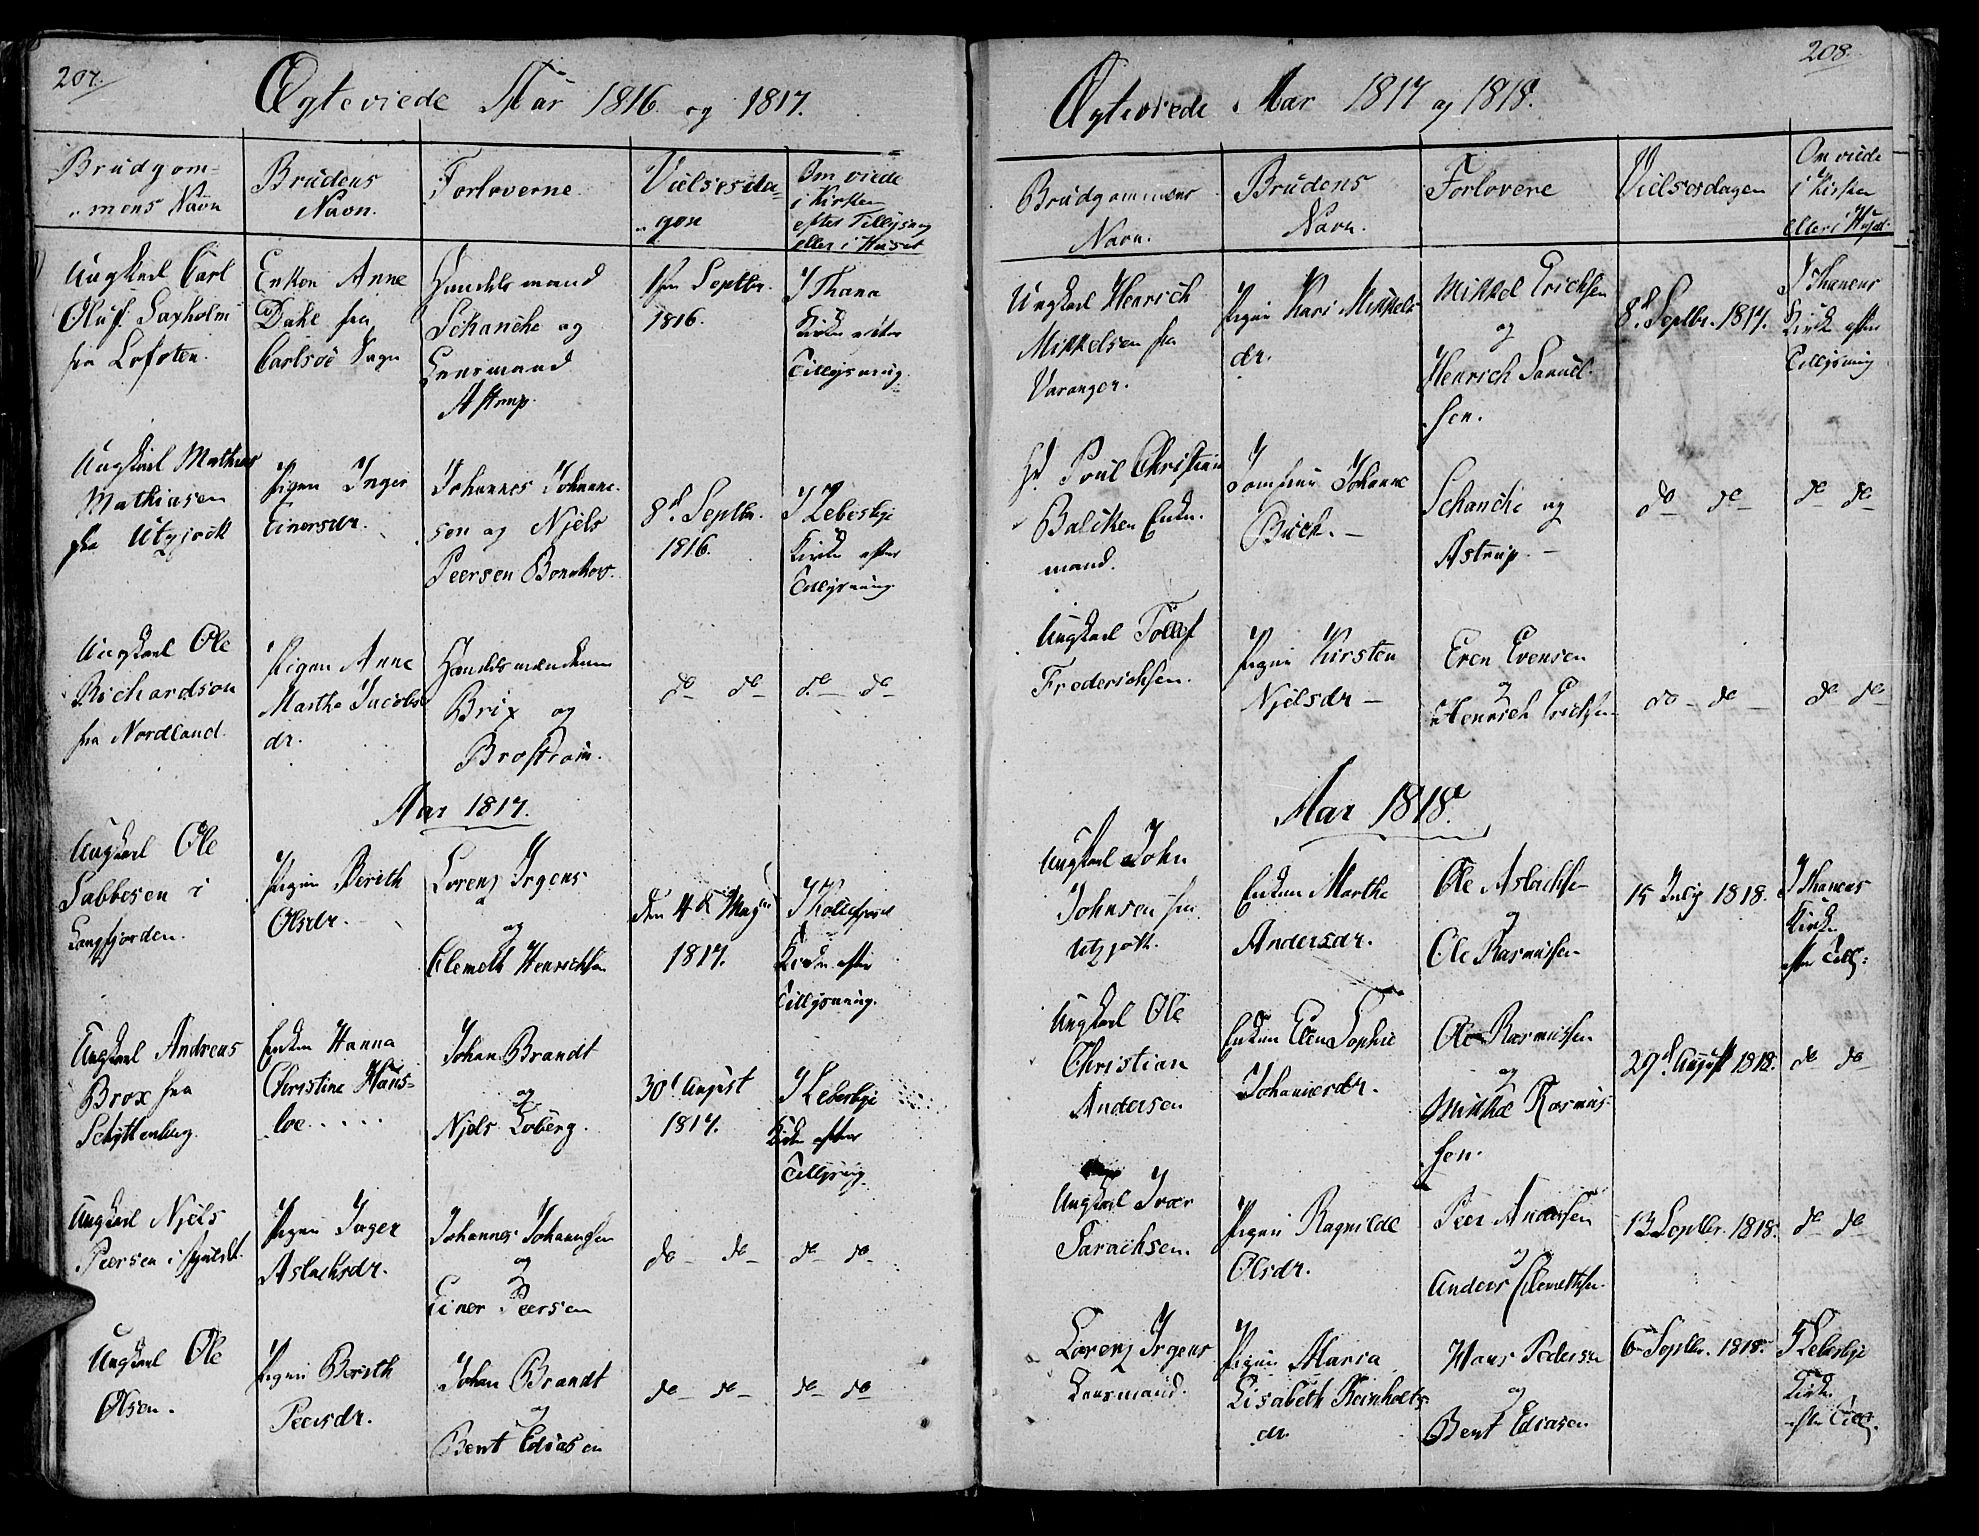 207.
Ægteviede Aar 1816 og 1817.
Brudgom-
mens Navn
Brudens
Navn.
Forloverne.
Vielsesda-
gen
Om viede
i Kirken
efter Tillysning
eller i Huset
Ungkarl Carl
Oluf Saxholm
fra Lofoten.
Enken Anne
Dahl fra
Carlsøe Sogn
Handelsmand
Schanche og
Lensmand
Astrup.
1ste Septbr.
1816.
I Thana
Kirke efter
Tillysning.
Ungkarl Mathias
Mathiasen
fra Utzjock
Pigen Inger
Einersdr.
Johannes Johanne-
sen og Njels
Peersen
8d Septbr.
1816.
I Lebesbye
Kirke efter
Tillysning
Ungkarl Ole
Richardson
fra Nordland.
Pigen Anne
Marthe Jacobs
dr.
Handelsmændene
Brix og
Brostrøm.
do do
do do
Aar 1817.
Ungkarl Ole
Sabbesen i
Langfjorden.
Pigen Berith
Olsdr.
Lorenz Irgens
og
Clemeth Henrichsen
den 4de May
1817.
I Kollefjord
Kirke efter
Tillysning.
Ungkarl Andreas
Brox fra
Enken Hanna
Christine Hans-
loe.....
Johan Brandt
og
Njels Loberg.
30d August
1817.
I Lebesbye
Kirke efter
Tillysning
Ungkarl Njels
Peersen i
Pigen Inger
Aslachsdr.
Johannes Johannesen
og
Einer Peersen
do do
do do
Ungkarl Ole
Olsen.
Pigen Berith
Peersdr.
Johan Brandt
og
Bent Ediasen
do do
do do
208.
Ægteviede Aar 1817 og 1818.
Brudgommens
Navn.
Brudens
Navn.
Forlovere
Vielsesdagen
Om viede
i Kirken
eller i Huset
Ungkarl Henrich
Mikkelsen fra
Varanger.
Pigen Kari Mikkels
dr.
Mikkel Erichsen
og
Henrich Samuel-
sen.
8d Septbr. 1817.
I Thanens
Kirke efter
Tillysning
Hr. Poul Christian
Balcken Enke-
mand.
Jomfrue Johanne
Buck. -
Schanche og
Astrup. -
do do
do do
Ungkarl Tollef
Frederichsen.
Pigen Kirsten
Njelsdr -
Even Evensen
og
Henrich Erichsen
do do
do do
Aar 1818.
Ungkarl John
Johnsen fra
Utzjock.
Enken Marthe
Andersdr.
Ole Aslachsen
og
Ole Rasmussen
15 July 1818.
I Thanens
Kirke
efter Till:
Ungkarl Ole
Christian
Andersen
Enken Elen Sophie
Johannesdr.
Ole Rasmussen
og
Mikkel Rasmus-
sen.
29d August 1818.
do do
Ungkarl Iver
Sarachsen.
Pigen Ragnilde
Olsdr.
Peer Andersen
og
Anders Clemethsen
13 Septbr. 1818.
do do
Lorenz Irgens
Lensmand.
Pigen Maria
Lisabeth Reinholts
dr.
Hans Pedersen
og
Bent Ediasen
6 Septbr. 1818
I Lebesbye
Kirke
efter Till.